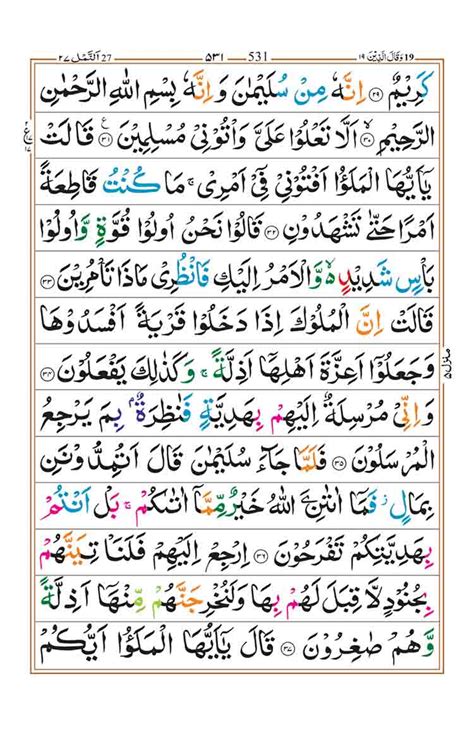 27 اَلنَّمْل ٢٧ ٥٣١ 531 19 وَقَالَ الَّذِيْنَ ١٩
كَرِيْمٌ ﴿٢٩﴾ اِنَّهٗ مِنْ سُلَيْمٰنَ وَاِنَّهٗ بِسْمِ اللّٰهِ الرَّحْمٰنِ
الرَّحِيْمِ ﴿٣٠﴾ اَلَّا تَعْلُوْا عَلَيَّ وَاْتُوْنِيْ مُسْلِمِيْنَ ﴿٣١﴾ قَالَتْ
يٰۤاَيُّهَا الْمَلَؤُا اَفْتُوْنِيْ فِيْۤ اَمْرِيْ ۚ مَا كُنْتُ قَاطِعَةً
اَمْرًا حَتّٰى تَشْهَدُوْنِ ﴿٣٢﴾ قَالُوْا نَحْنُ اُولُوْا قُوَّةٍ وَّاُولُوْا
بَاْسٍ شَدِيْدٍ ۙ٥ وَّالْاَمْرُ اِلَيْكِ فَانْظُرِيْ مَاذَا تَاْمُرِيْنَ ﴿٣٣﴾
قَالَتْ اِنَّ الْمُلُوْكَ اِذَا دَخَلُوْا قَرْيَةً اَفْسَدُوْهَا
وَجَعَلُوْۤا اَعِزَّةَ اَهْلِهَاۤ اَذِلَّةً ۚ وَكَذٰلِكَ يَفْعَلُوْنَ ﴿٣٤﴾
وَاِنِّيْ مُرْسِلَةٌ اِلَيْهِمْ بِهَدِيَّةٍ فَنٰظِرَةٌۢ بِمَ يَرْجِعُ
الْمُرْسَلُوْنَ ﴿٣٥﴾ فَلَمَّا جَآءَ سُلَيْمٰنَ قَالَ اَتُمِدُّوْنَنِ
بِمَالٍ ز فَمَاۤ اٰتٰىنِۦَ اللّٰهُ خَيْرٌ مِّمَّاۤ اٰتٰىكُمْ ۚ بَلْ اَنْتُمْ
بِهَدِيَّتِكُمْ تَفْرَحُوْنَ ﴿٣٦﴾ اِرْجِعْ اِلَيْهِمْ فَلَنَاْتِيَنَّهُمْ
بِجُنُوْدٍ لَّا قِبَلَ لَهُمْ بِهَا وَلَنُخْرِجَنَّهُمْ مِّنْهَاۤ اَذِلَّةً
وَّهُمْ صٰغِرُوْنَ ﴿٣٧﴾ قَالَ يٰۤاَيُّهَا الْمَلَؤُا اَيُّكُمْ
منزل ٥